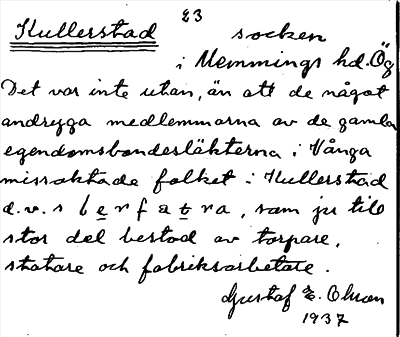 23
Kullerstad socken
i Memmings hd. Ög
Det var inte utan, än att de något
andryga medlemmarna av de gamla
egendomsbondesläkterna i Vånga
missaktade folket i Kullerstad
d.v.s berfatra, som ju till
stor del bestod av torpare,
statare och fabriksarbetare.
Gustaf E. Olsson
1937